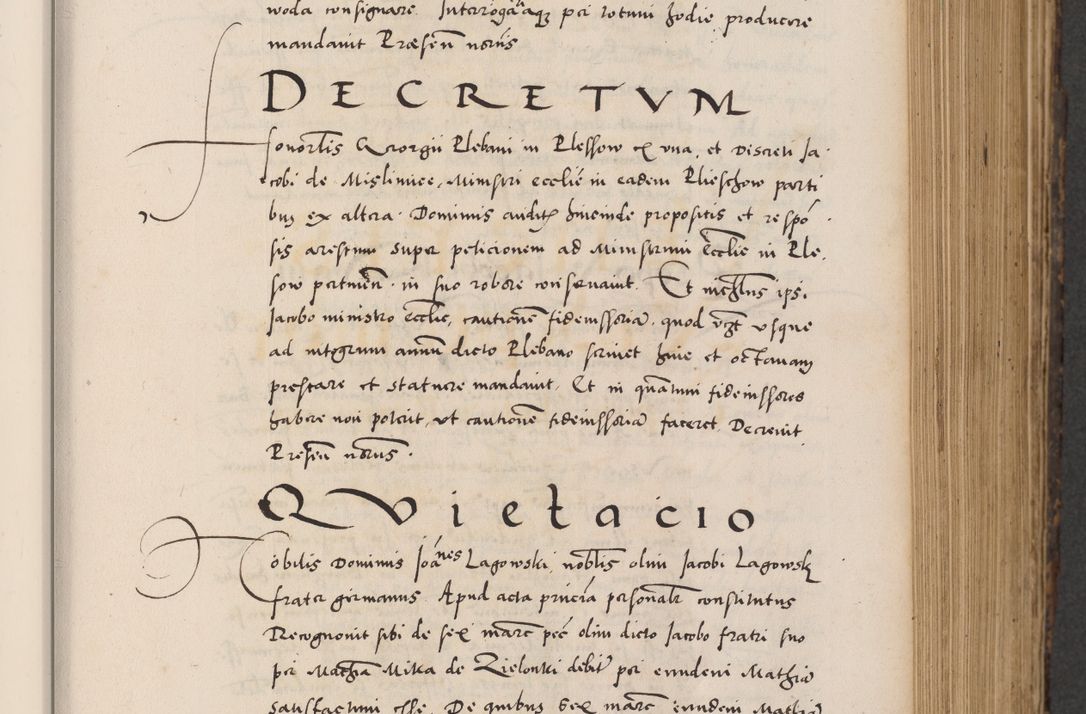 woda consignare. Interrogaᵗaqꝫ per rotum hodie producere
mandauit Præsen̄ nōriis
DECRETVM
Honorīlis Georgii Plebani in Plessow ex vna, et Discreti Ja-
cobi de Mislimice, Ministri ecclīe in eadem Plieschow parti
bus ex altera. Dominus auditꝭ hincinde propositis et respō
sis arestum super peticionem ad Ministrum Eccl̄ie in Ple-
sow pertineñ. in suo robore conseruauit. Et
Jacobo ministro eccl̄ie, cautionē fideiussoriā, quod vsque
ad integrum annū dicto Plebano seruiet hinc et octauam
prestare et statuere mandauit. Et in quātum fideiussores
habere non poterit, vt cautionē fideiussoriā faceret Decreuit
Presen̄ nōriis.
QVietacio
Nobilis Dominus Joānes Lagowski, nobīlis olim Jacobi Lagowskꝭ
frater germanus. Apud acta pn̄cia personalr̄ constitutus
Recognouit sibi de sex marc̄ pec̄ olim dicto Jacobo fratri suo
per Mathiā Mika de Zielonki debitꝭ per eundem Mathiā
satisfactum esse. De quibus sex marc̄ eundem Mathiā